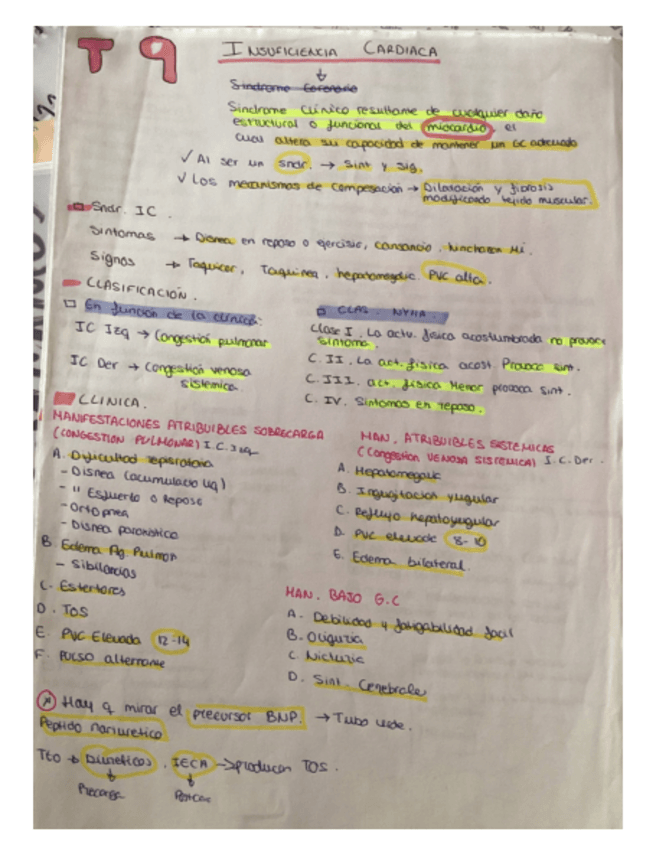 T 9
INSUFICIENCIA CARDIACA
Sindrome Coronario
Sindrome Clinico resultante de cualquier daño
estructural o funcional del miocardio el
cual altera su capacidad de mantener un GC adecuado
✓ Al ser un Sndr. → Sint y Sig.
✓ Los mecanismos de compesación → Dilatación y fibrosis
modificando tejido muscular.
Sndr. IC.
Sintomas → Disnea en reposo o ejercicio, cansancio, hinchazon Mi.
Signos → Taquicar, Taquipnea, hepatomegalia. PVC alta.
CLASIFICACIÓN.
En función de la clinica:
IC Izq → Congestión pulmonar
IC Der → Congestión venosa
sistemica.
CLAS. NYHA.
Clase I. La actv. fisica acostumbrada no provoca
sintoma.
C. II. La act. fisica acost. Provoca sint.
C. III. act. fisica Menor provoca sint.
C. IV. Sintomas en reposo.
CLINICA.
MANIFESTACIONES ATRIBUIBLES SOBRECARGA
(CONGESTION PULMONAR) I.C. Izq
A. Dificultad respiratoria
- Disnea (acumulacio liq)
- " Esfuerzo o Reposo
- Ortopnea
- Disnea paroxistica
B. Edema Ag. Pulmon
- Sibilancias
C. Estertores
D. TOS
E. PVC Elevada 12-14
F. PULSO alternante
MAN. ATRIBUIBLES SISTEMICAS
(Congestion VENOSA SISTEMICA) I.C. Der.
A. Hepatomegalia
B. Ingurgitacion yugular
C. Reflujo hepatoyugular
D. PVC elevada 8-10
E. Edema bilateral.
MAN. BAJO G.C
A. Debilidad y fatigabilidad facil
B. Oliguria
C. Nicturia
D. Sint. Cerebrales
Hay q mirar el precursor BNP. → Tubo verde.
Peptido Nariuretico
Tto → Diureticos, IECA → producen TOS.
Precarga Postcar